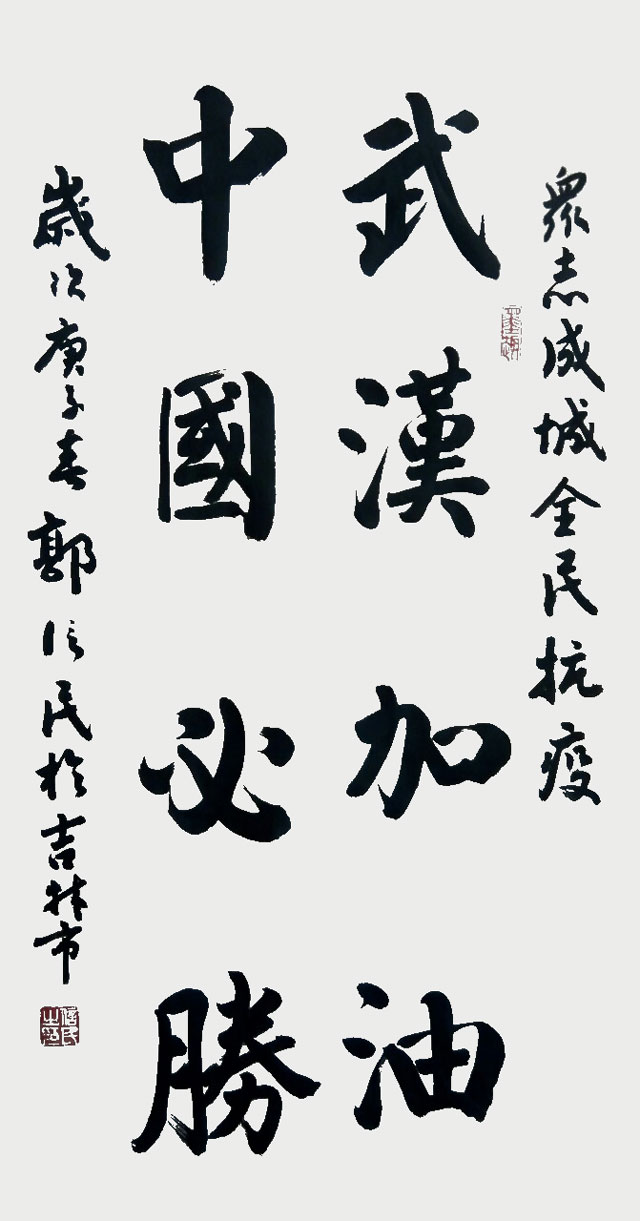 眾志成城全民抗疫
武漢加油
中國必勝
歲次庚子春郭信民於吉林市